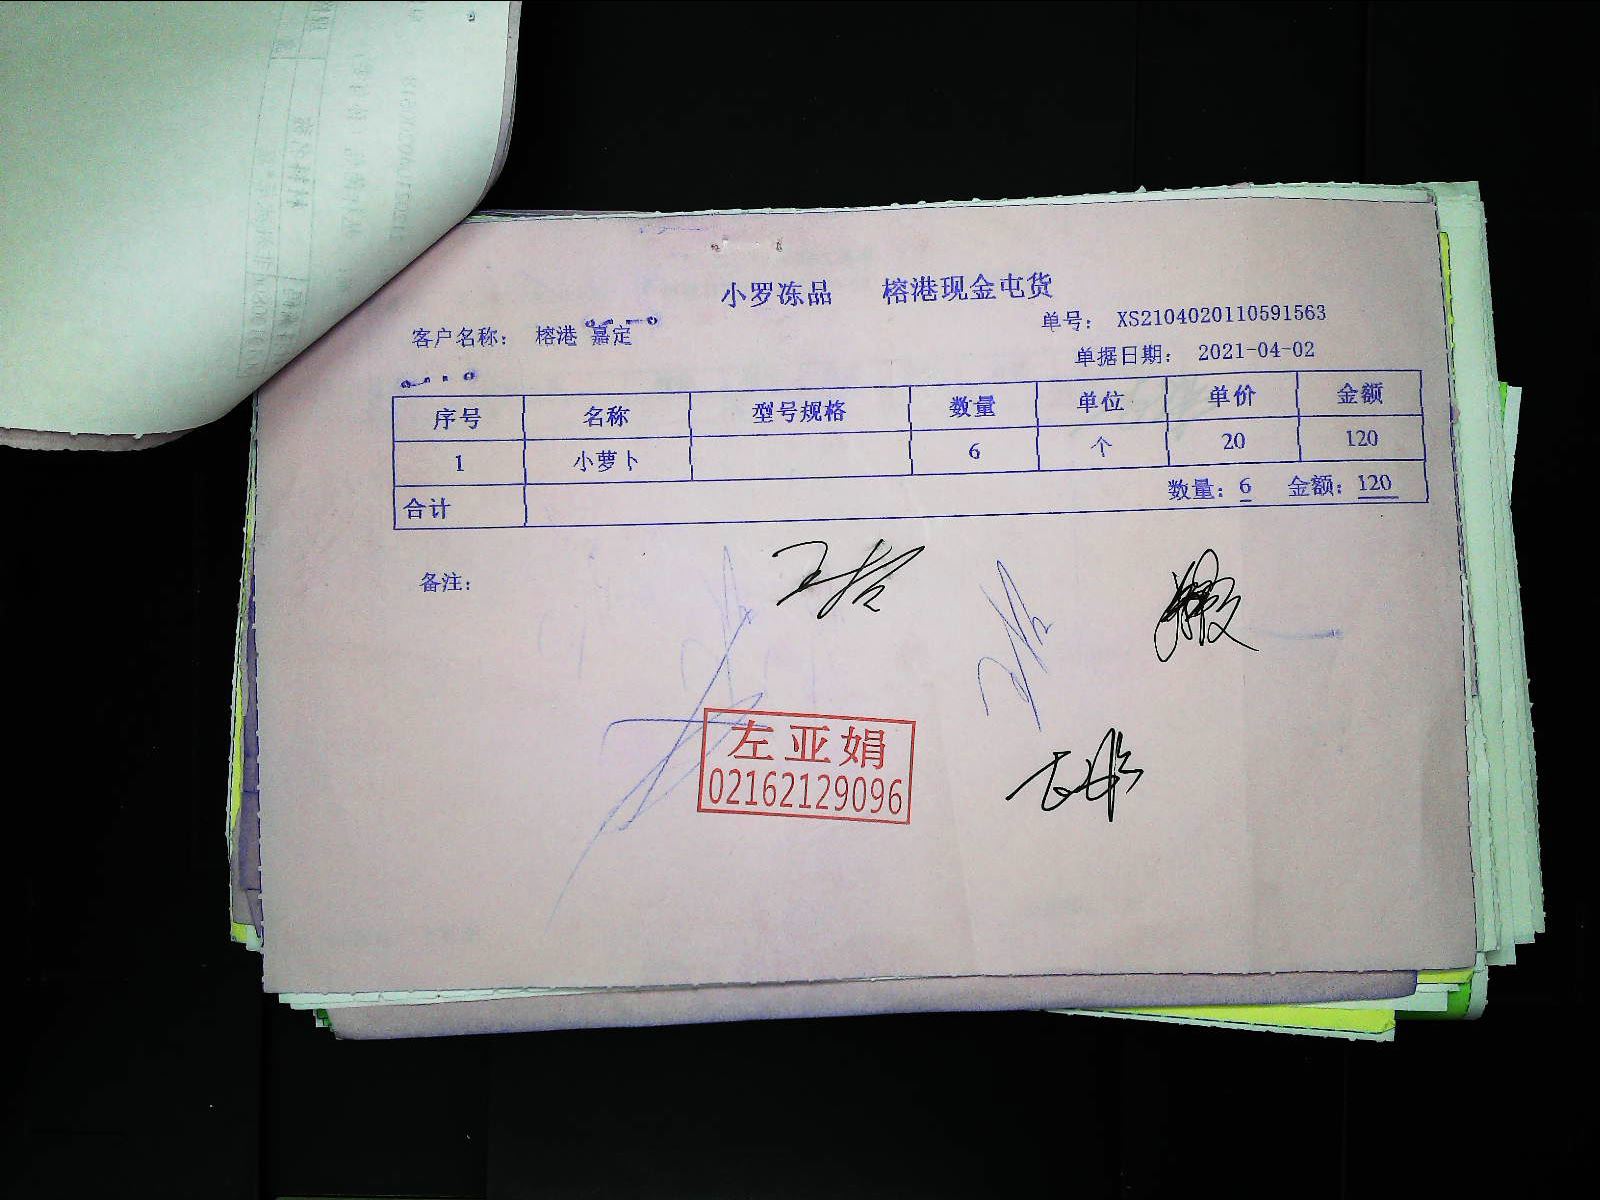 小罗冻品 榕港现金屯货
客户名称: 榕港 嘉定
单号: XS2104020110591563
单据日期: 2021-04-02
序号 名称 型号规格 数量 单位 单价 金额
1 小萝卜 6 个 20 120
合计 数量: 6 金额: 120
备注:
左亚娟
02162129096